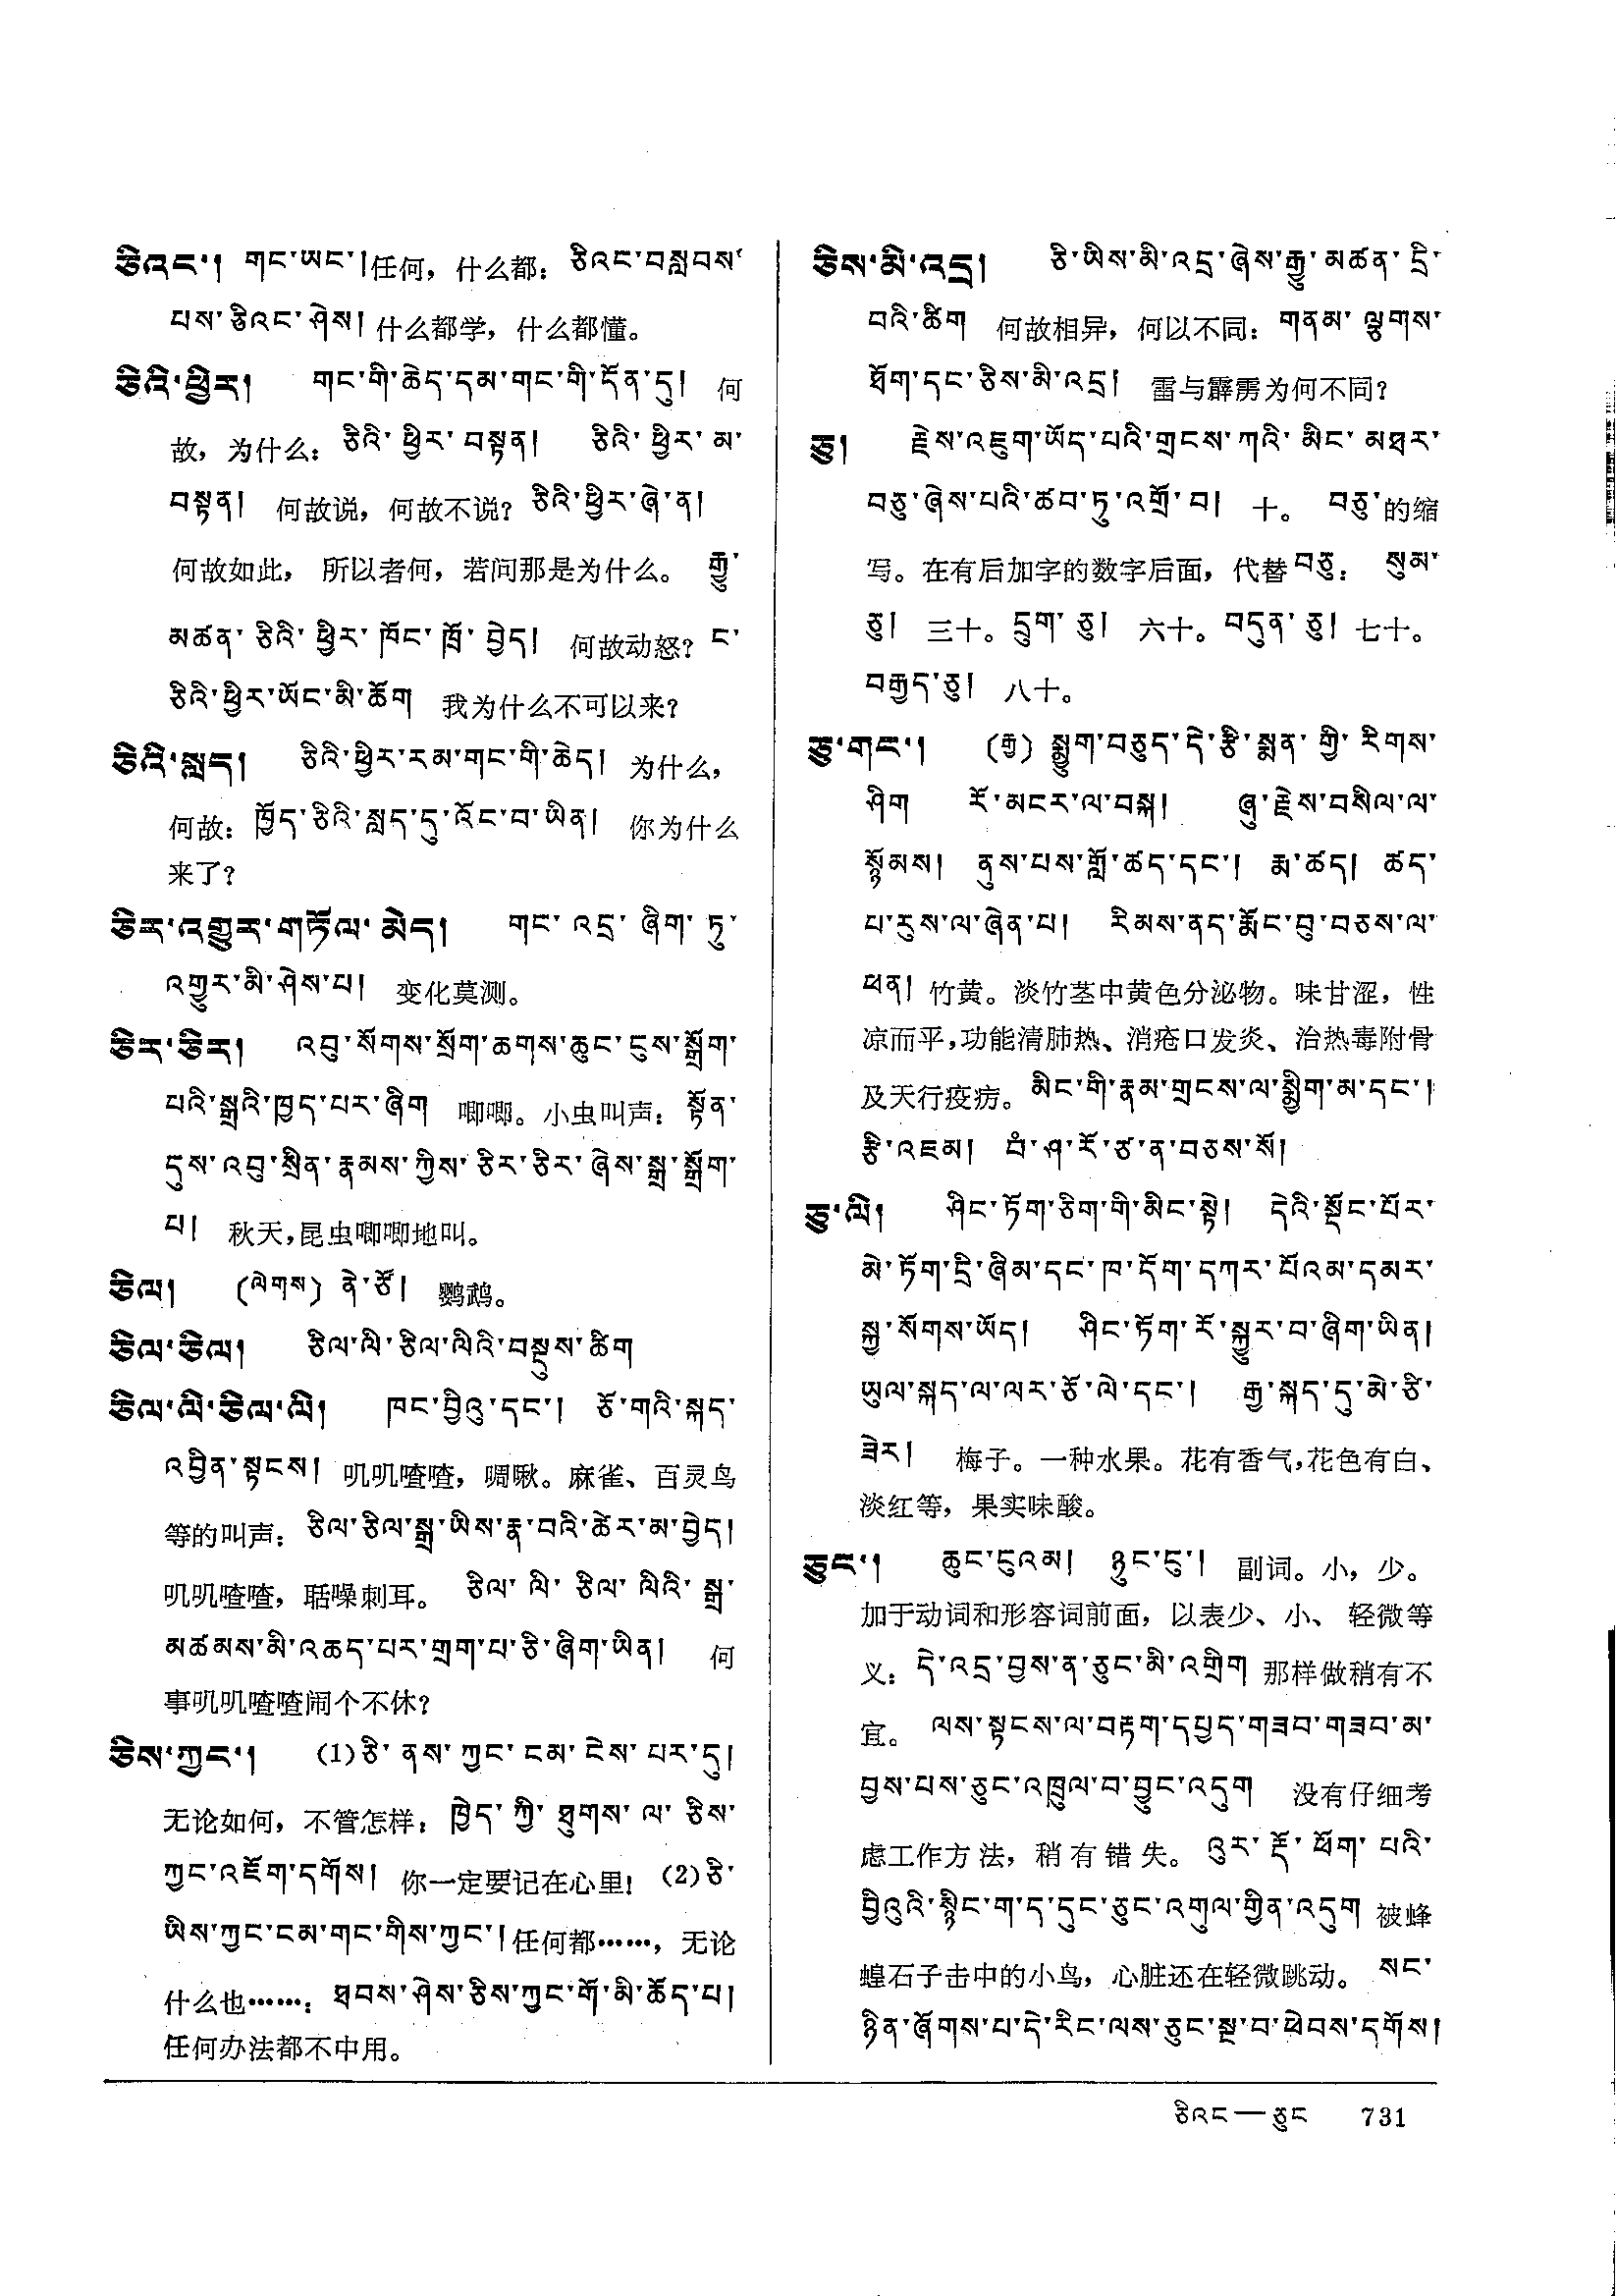 ཅིའང་། གང་ཡང་།任何，什么都：ཅིའང་བསླབས་
པས་ཅིའང་ཤེས། 什么都学，什么都懂。
ཅིའི་ཕྱིར། གང་གི་ཆེད་དམ་གང་གི་དོན་དུ། 何
故，为什么：ཅིའི་ཕྱིར་བསྟན། ཅིའི་ཕྱིར་མ་
བསྟན། 何故说，何故不说？ཅིའི་ཕྱིར་ཞེ་ན།
何故如此，所以者何，若问那是为什么。 རྒྱུ་
མཚན་ཅིའི་ཕྱིར་ཁོང་ཁྲོ་བྱེད། 何故动怒？ང་
ཅིའི་ཕྱིར་ཡོང་མི་ཆོག 我为什么不可以来？
ཅིའི་སླད། ཅིའི་ཕྱིར་རམ་གང་གི་ཆེད། 为什么，
何故：ཁྱོད་ཅིའི་སླད་དུ་འོང་བ་ཡིན། 你为什么
来了？
ཅིར་འགྱུར་གཏོལ་མེད། གང་འདྲ་ཞིག་ཏུ་
འགྱུར་མི་ཤེས་པ། 变化莫测。
ཅིར་ཅིར། འབུ་སོགས་སྲོག་ཆགས་ཆུང་ངུས་སྒྲོག་
པའི་སྒྲའི་ཁྱད་པར་ཞིག 唧唧。小虫叫声：སྟོན་
དུས་འབུ་སྲིན་རྣམས་ཀྱིས་ཅིར་ཅིར་ཞེས་སྒྲ་སྒྲོག་
པ། 秋天，昆虫唧唧地叫。
ཅིལ། (ལེགས) ནེ་ཙོ། 鹦鹉。
ཅིལ་ཅིལ། ཅིལ་ལི་ཅིལ་ལིའི་བསྡུས་ཚིག
ཅིལ་ལི་ཅིལ་ལི། ཁང་བྱིའུ་དང་། ཅོ་གའི་སྐད་
འབྱིན་སྟངས། 叽叽喳喳，啁啾。麻雀、百灵鸟
等的叫声：ཅིལ་ཅིལ་སྒྲ་ཡིས་རྣ་བའི་ཚེར་མ་བྱེད།
叽叽喳喳，聒噪刺耳。 ཅིལ་ལི་ཅིལ་ལིའི་སྒྲ་
མཚམས་མི་འཆད་པར་གྲག་པ་ཅི་ཞིག་ཡིན། 何
事叽叽喳喳闹个不休？
ཅིས་ཀྱང་། (1)ཅི་ནས་ཀྱང་ངམ་ངེས་པར་དུ།
无论如何，不管怎样：ཁྱེད་ཀྱི་ཐུགས་ལ་ཅིས་
ཀྱང་འཇོག་དགོས། 你一定要记在心里！(2)ཅི་
ཡིས་ཀྱང་ངམ་གང་གིས་ཀྱང་།任何都……，无论
什么也……：ཐབས་ཤེས་ཅིས་ཀྱང་གོ་མི་ཆོད་པ།
任何办法都不中用。
ཅིས་མི་འདྲ། ཅི་ཡིས་མི་འདྲ་ཞེས་རྒྱུ་མཚན་དྲི་
བའི་ཚིག 何故相异，何以不同：གནམ་ལྕགས་
ཐོག་དང་ཅིས་མི་འདྲ། 雷与霹雳为何不同？
ཅུ། རྗེས་འཇུག་ཡོད་པའི་གྲངས་ཀའི་མིང་མཐར་
བཅུ་ཞེས་པའི་ཚབ་ཏུ་འགྲོ་བ། 十。 བཅུ་的缩
写。在有后加字的数字后面，代替བཅུ： སུམ་
ཅུ། 三十。དྲུག་ཅུ། 六十。བདུན་ཅུ། 七十。
བརྒྱད་ཅུ། 八十。
ཅུ་གང་། (རྒྱ) སྨྱུག་བཅུད་དེ་རྩི་སྨན་གྱི་རིགས་
ཤིག རོ་མངར་ལ་བསྐ། ཞུ་རྗེས་བསིལ་ལ་
སྙོམས། ནུས་པས་གློ་ཚད་དང་། རྨ་ཚད། ཚད་
པ་རུས་ལ་ཞེན་པ། རིམས་ནད་རྨོང་བུ་བཅས་ལ་
ཕན། 竹黄。淡竹茎中黄色分泌物。味甘涩，性
凉而平，功能清肺热、消疮口发炎、治热毒附骨
及天行疫疠。མིང་གི་རྣམ་གྲངས་ལ་སྨྱིག་མ་དང་།
རྩི་འཇམ། པཾ་ཤ་རོ་ཙ་ན་བཅས་སོ།
ཅུ་ལི། ཤིང་ཏོག་ཅིག་གི་མིང་སྟེ། དེའི་སྡོང་པོར་
མེ་ཏོག་དྲི་ཞིམ་དང་ཁ་དོག་དཀར་པོའམ་དམར་
སྐྱ་སོགས་ཡོད། ཤིང་ཏོག་རོ་སྐྱུར་བ་ཞིག་ཡིན།
ཡུལ་སྐད་ལ་ལར་ཅོ་ལེ་དང་། རྒྱ་སྐད་དུ་མེ་ཙི་
ཟེར། 梅子。一种水果。花有香气，花色有白、
淡红等，果实味酸。
ཅུང་། ཆུང་ངུའམ། ཉུང་ངུ་། 副词。小，少。
加于动词和形容词前面，以表少、小、轻微等
义：དེ་འདྲ་བྱས་ན་ཅུང་མི་འགྲིག 那样做稍有不
宜。 ལས་སྟངས་ལ་བརྟག་དཔྱད་གཟབ་གཟབ་མ་
བྱས་པས་ཅུང་འཁྲུལ་བ་བྱུང་འདུག 没有仔细考
虑工作方法，稍有错失。འུར་རྡོ་ཕོག་པའི་
བྱིའུའི་སྙིང་ག་ད་དུང་ཅུང་འགུལ་གྱིན་འདུག 被蜂
蝗石子击中的小鸟，心脏还在轻微跳动。 སང་
ཉིན་ཞོགས་པ་དེ་རིང་ལས་ཅུང་སྔ་བ་ཕེབས་དགོས།
ཅིའང — ཅུང 731